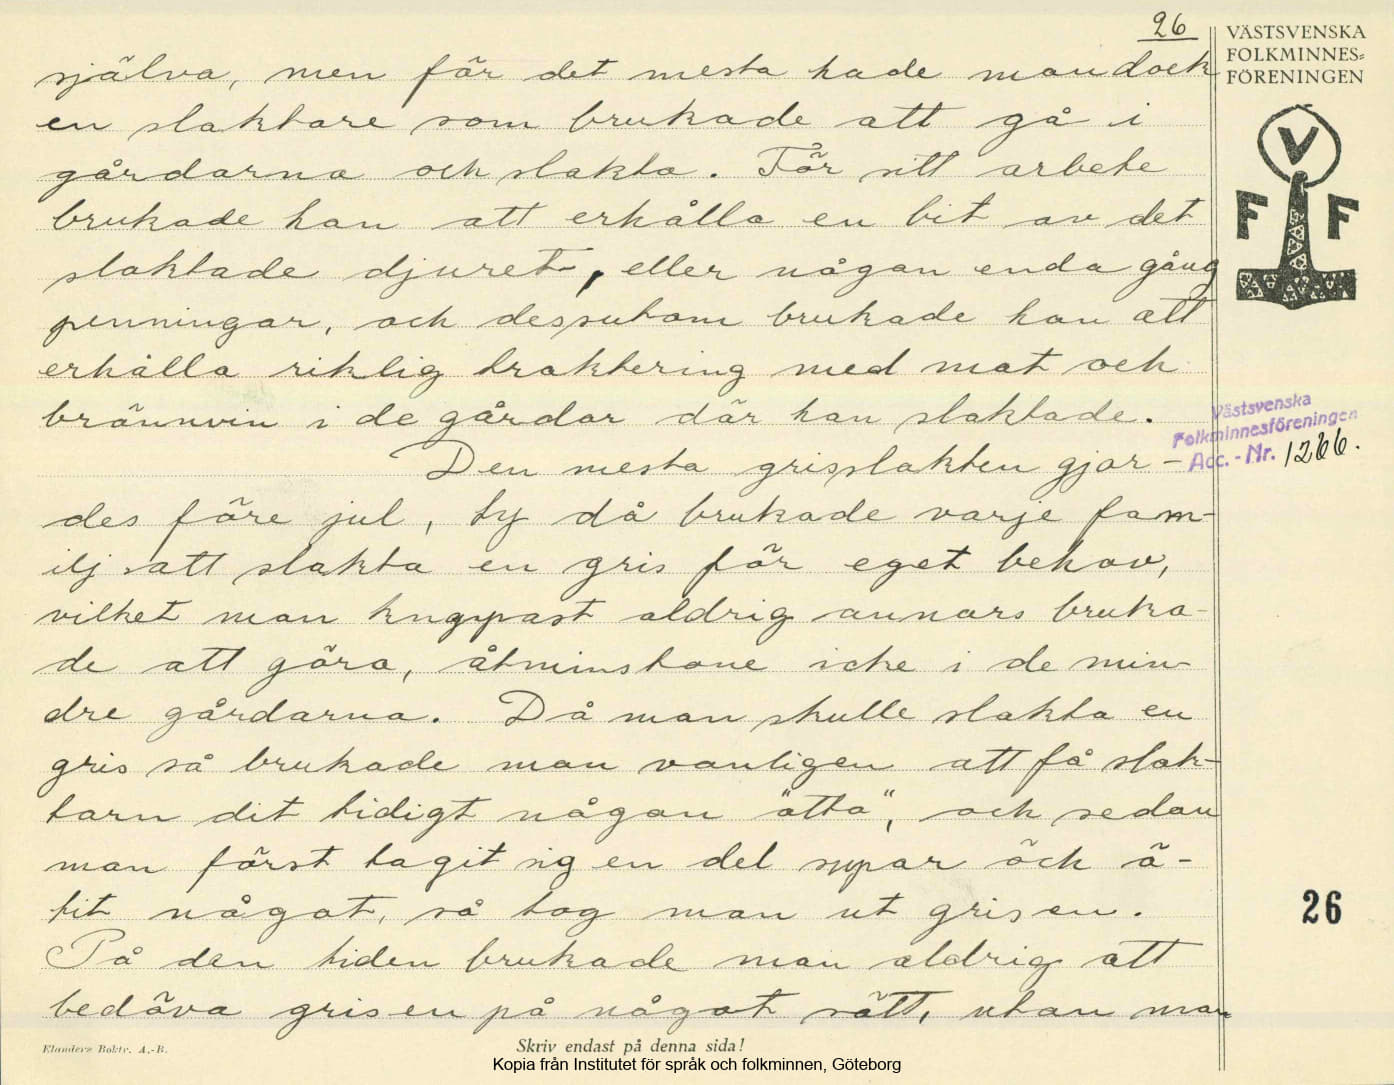 26
VÄSTSVENSKA
FOLKMINNES=
FÖRENINGEN
V
F F
själva, men för det mesta hade man dock
en slaktare som brukade att gå i
gårdarna och slakta. För sitt arbete
brukade han att erhålla en bit av det
slaktade djuret, eller någon enda gång
penningar, och dessutom brukade han att
erhålla riklig traktering med mat och
brännvin i de gårdar där han slaktade.
Västsvenska
Folkminnesföreningen
Acc. - Nr. 1266.
Den mesta grisslakten gjor-
des före jul, ty då brukade varje fam-
ilj att slakta en gris för eget behov,
vilket man knappast aldrig annars bruka-
de att göra, åtminstone icke i de min-
dre gårdarna. Då man skulle slakta en
gris så brukade man vanligen att få slak-
tarn dit tidigt någon "otta", och sedan
man först tagit sig en del supar och ä-
tit något, så tog man ut grisen.
På den tiden brukade man aldrig att
bedöva grisen på något sätt, utan man
26
Elanders Boktr. A.-B.
Skriv endast på denna sida!
Kopia från Institutet för språk och folkminnen, Göteborg